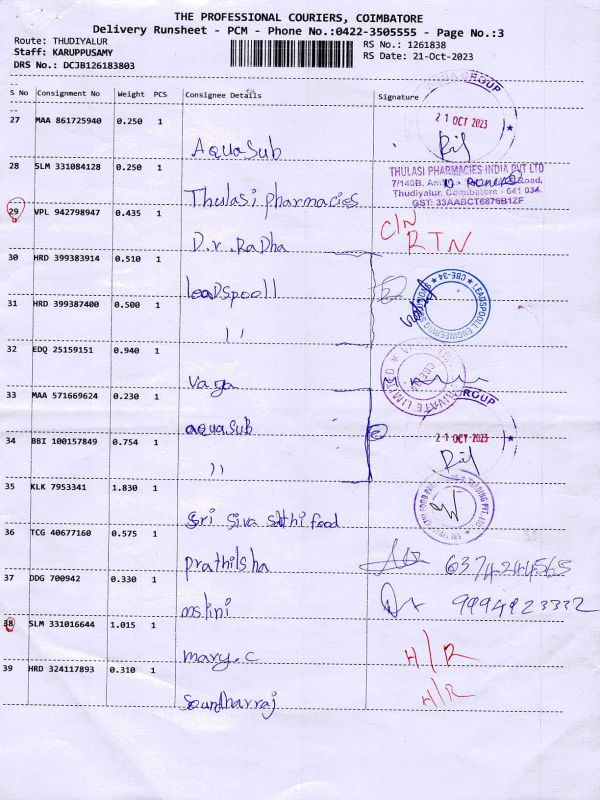 THE PROFESSIONAL COURIERS, COIMBATORE
Delivery Runsheet - PCM - Phone No.:0422-3505555 - Page No.:3
Route: THUDIYALUR
RS No.: 1261838
Staff: KARUPPUSAMY
RS Date: 21-Oct-2023
DRS No.: DCJB126183803
S No Consignment No Weight PCS Consignee Details Signature
27 MAA 861725940 0.250 1
GROUP
21 OCT 2023
AquaSub
28 SLM 331084128 0.250 1
THULASI PHARMACIES INDIA PVT LTD
7/140B, Road,
Thudiyalur, Coimbatore - 641 034.
GST: 33AABCT6876B1ZF
Thulasi pharmacies
29 VPL 942798947 0.435 1
C/N
RTN
D.r.Radha
30 HRD 399383914 0.510 1
leadspooll
LEADSPOOLL ENGINEERING
CBE-34
31 HRD 399387400 0.500 1
''
32 EDQ 25159151 0.940 1
PRIVATE LIMITED
Vaga
33 MAA 571669624 0.230 1
GROUP
21 OCT 2023
aquaSub
34 BBI 100157849 0.754 1
''
35 KLK 7953341 1.830 1
TRADING PVT. LTD
Sri Siva Sathi food
36 TCG 40677160 0.575 1
prathilsha
6374244565
37 DDG 700942 0.330 1
9994923332
mslini
38 SLM 331016644 1.015 1
mary.c
H/R
39 HRD 324117893 0.310 1
H/R
Soundharraj